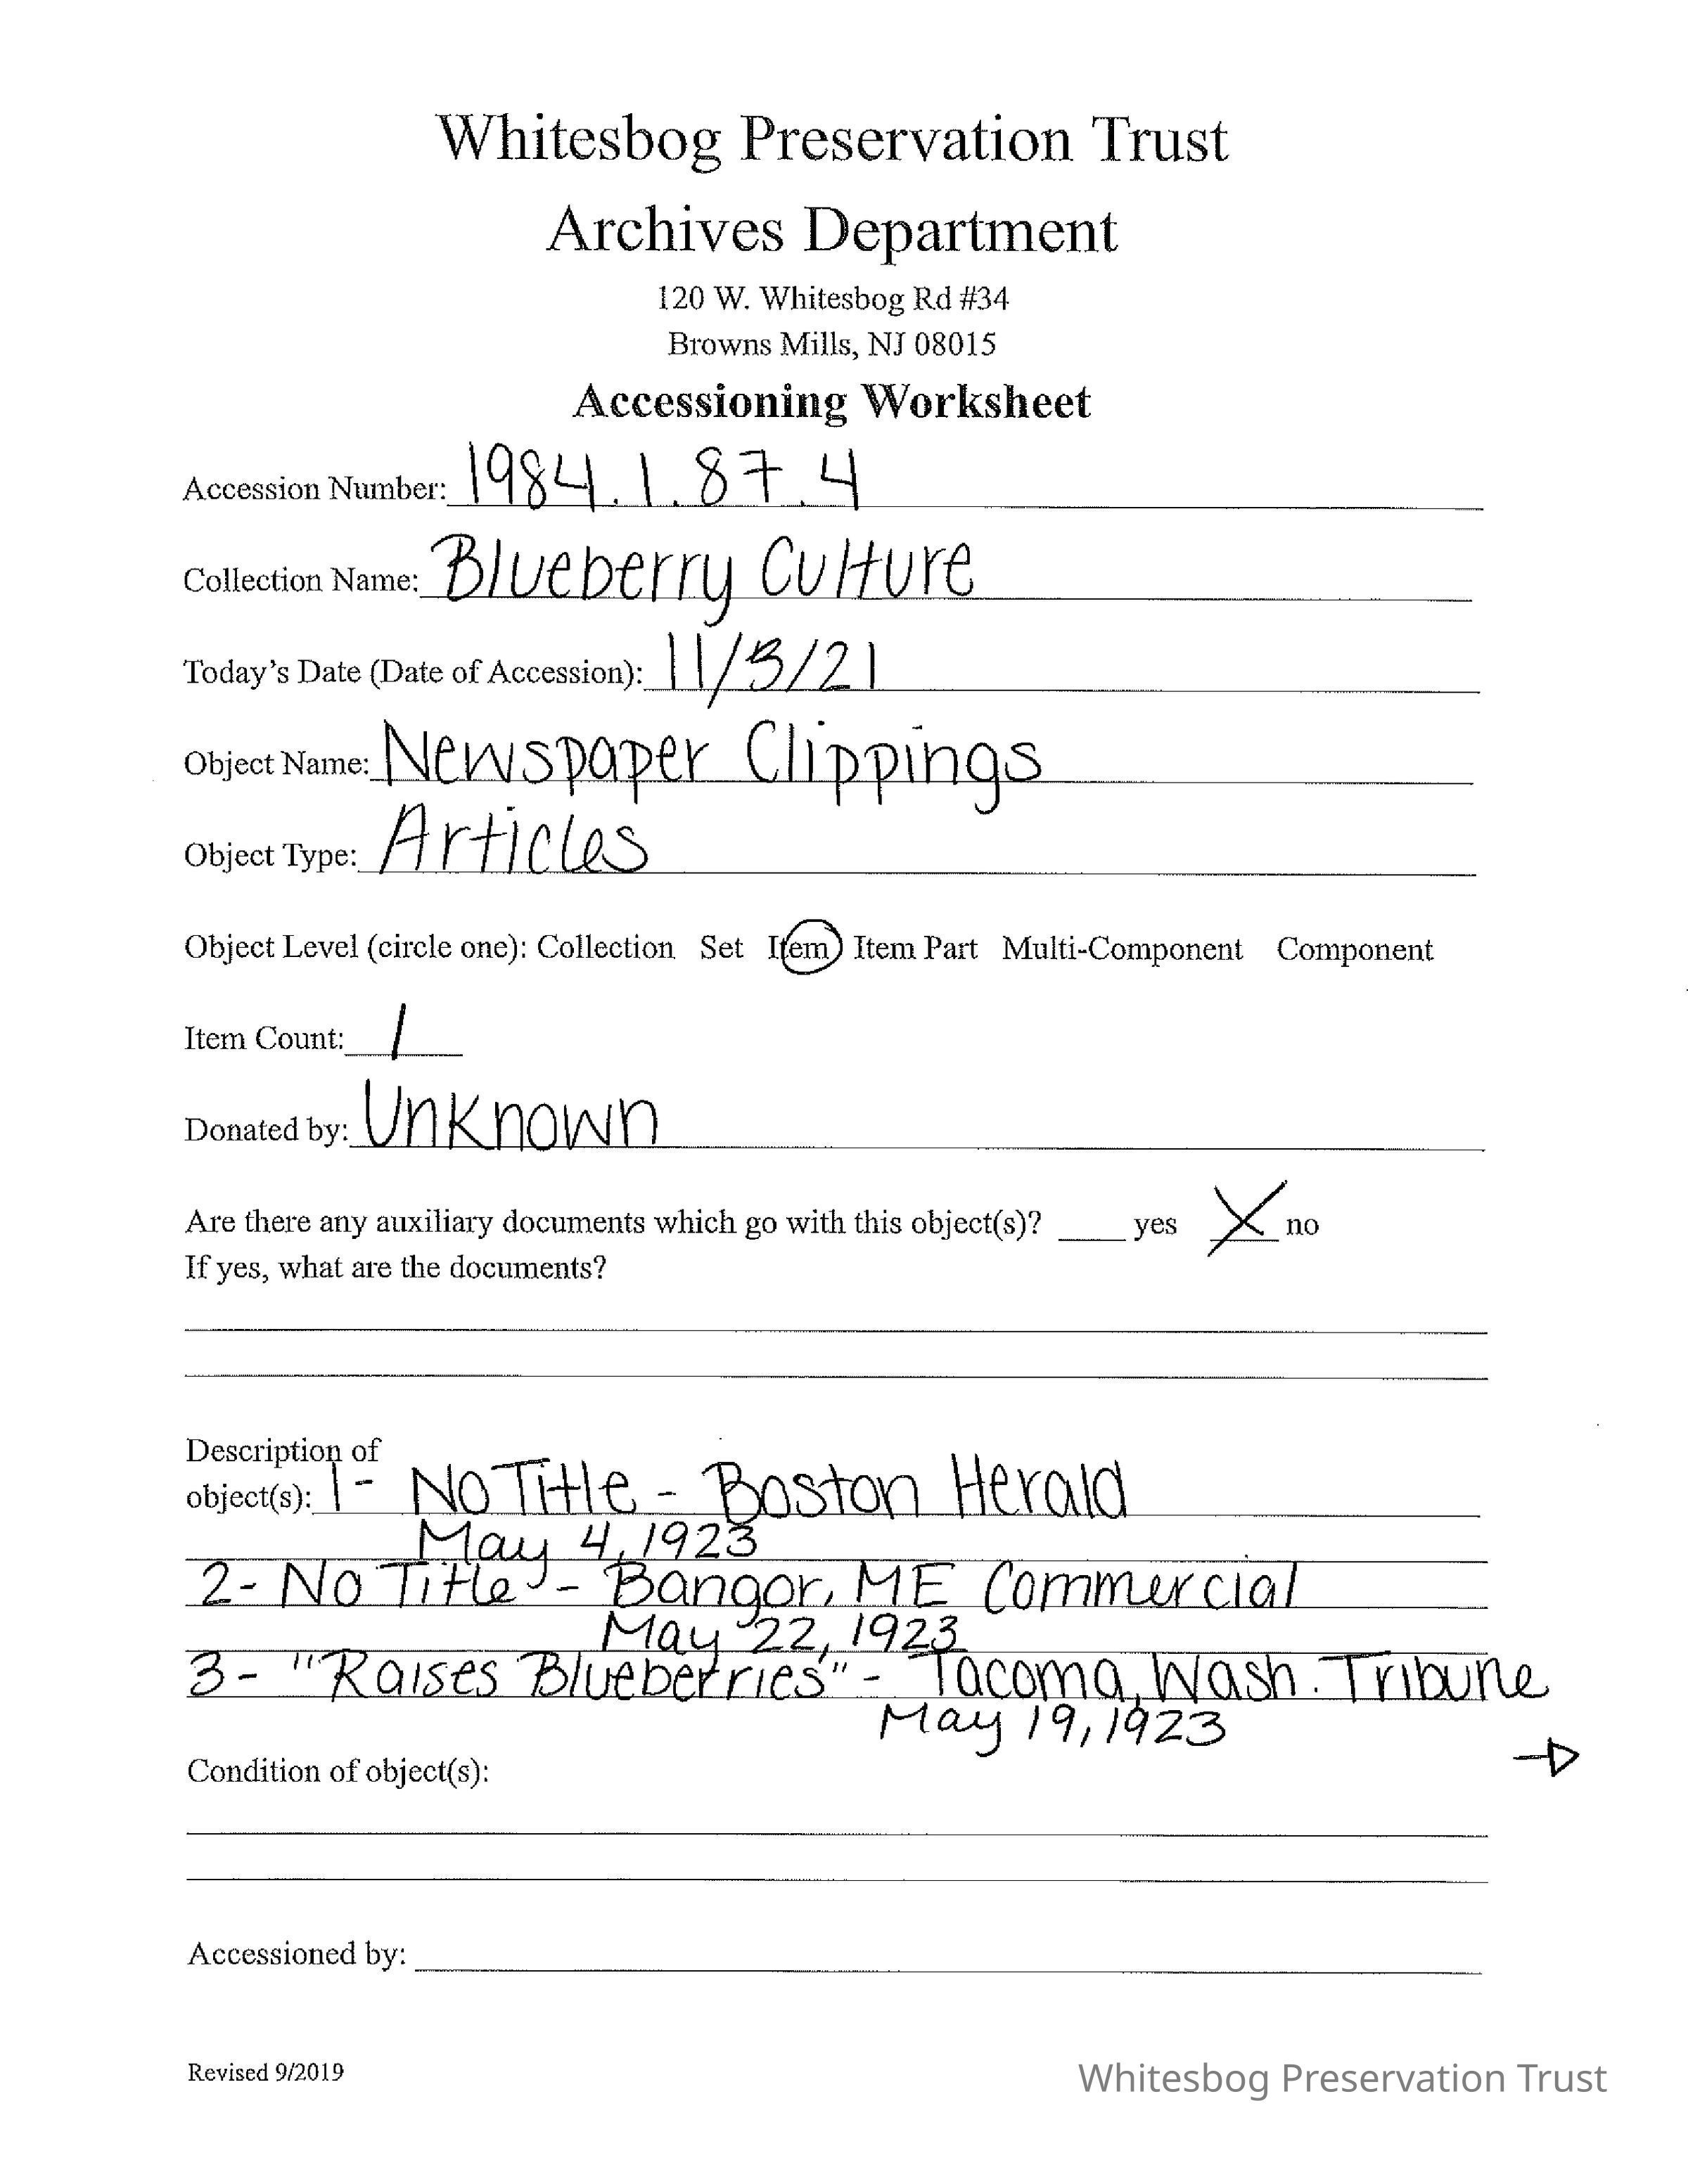 Whitesbog Preservation Trust
Archives Department
120 W. Whitesbog Rd #34
Browns Mills, NJ 08015
Accessioning Worksheet
Accession Number: 1984.1.87.4
Collection Name: Blueberry Culture
Today's Date (Date of Accession): 11/3/21
Object Name: Newspaper Clippings
Object Type: Articles
Object Level (circle one): Collection Set Item Item Part Multi-Component Component
Item Count: 1
Donated by: Unknown
Are there any auxiliary documents which go with this object(s)? ____ yes X no
If yes, what are the documents?
Description of
object(s): 1- No Title - Boston Herald
May 4, 1923
2- No Title - Bangor, ME Commercial
May 22, 1923
3- "Raises Blueberries" - Tacoma, Wash. Tribune
May 19, 1923
Condition of object(s):
Accessioned by:
Revised 9/2019
Whitesbog Preservation Trust